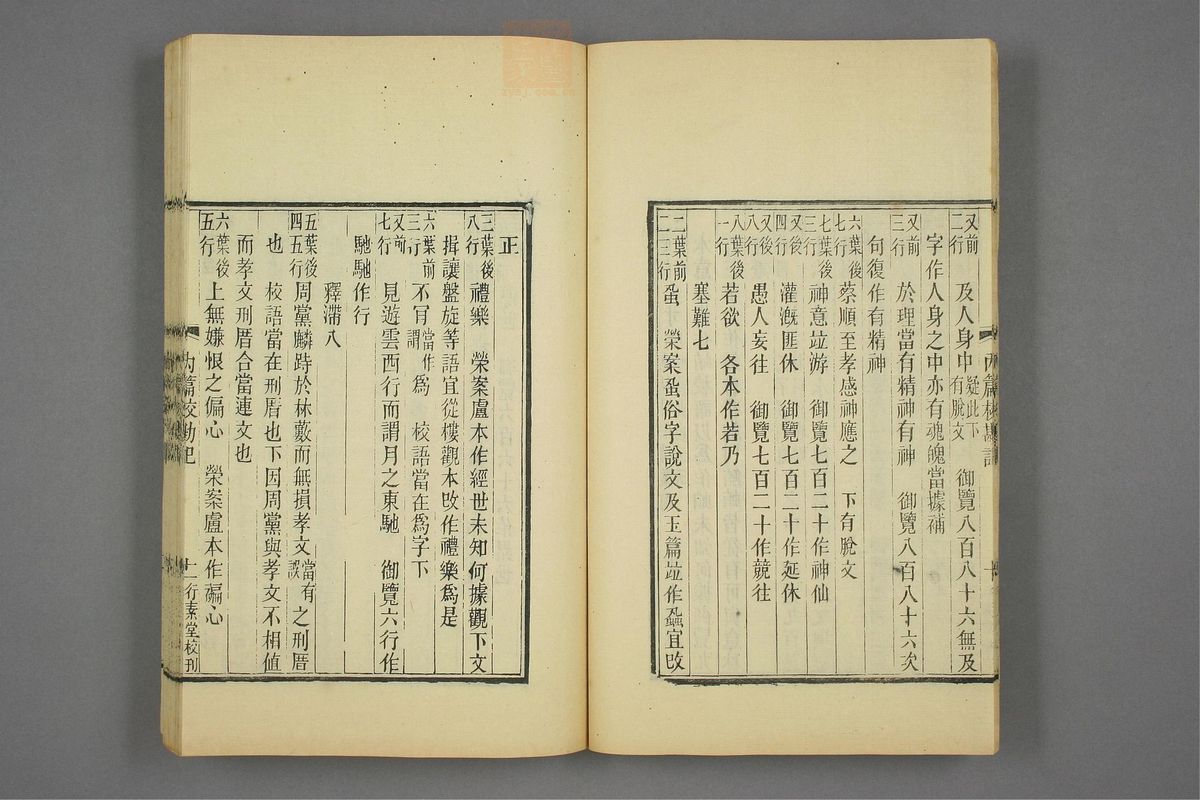 又前二行 及人身中 疑此下有脫文 御覽八百八十六無及
字作人身之中亦有魂魄當據補
又前三行 於理當有精神有神 御覽八百八十六次
句復作有精神
六葉後七行 蔡順至孝感神應之 下有脫文
七葉後三行 神意竝游 御覽七百二十作神仙
又後四行 灌漑匪休 御覽七百二十作延休
又後八行 愚人妄往 御覽七百二十作競往
八葉後一行 若欲 各本作若乃
塞難七
二葉前二三行 蝨 榮案蝨俗字說文及玉篇竝作蝨宜改
正
三葉後八行 禮樂 榮案盧本作經世未知何據觀下文
揖讓盤旋等語宜從樓觀本改作禮樂爲是
六葉前三行 不肎 當作謂爲 校語當在爲字下
又前七行 見遊雲西行而謂月之東馳 御覽六行作
馳馳作行
釋滯八
五葉後四五行 周黨麟跱於林藪而無損孝文 當有誤 之刑厝
也 校語當在刑厝也下因周黨與孝文不相値
而孝文刑厝合當連文也
六葉後五行 上無嫌恨之偏心 榮案盧本作褊心
內篇校勘記 十一 行素堂校刊